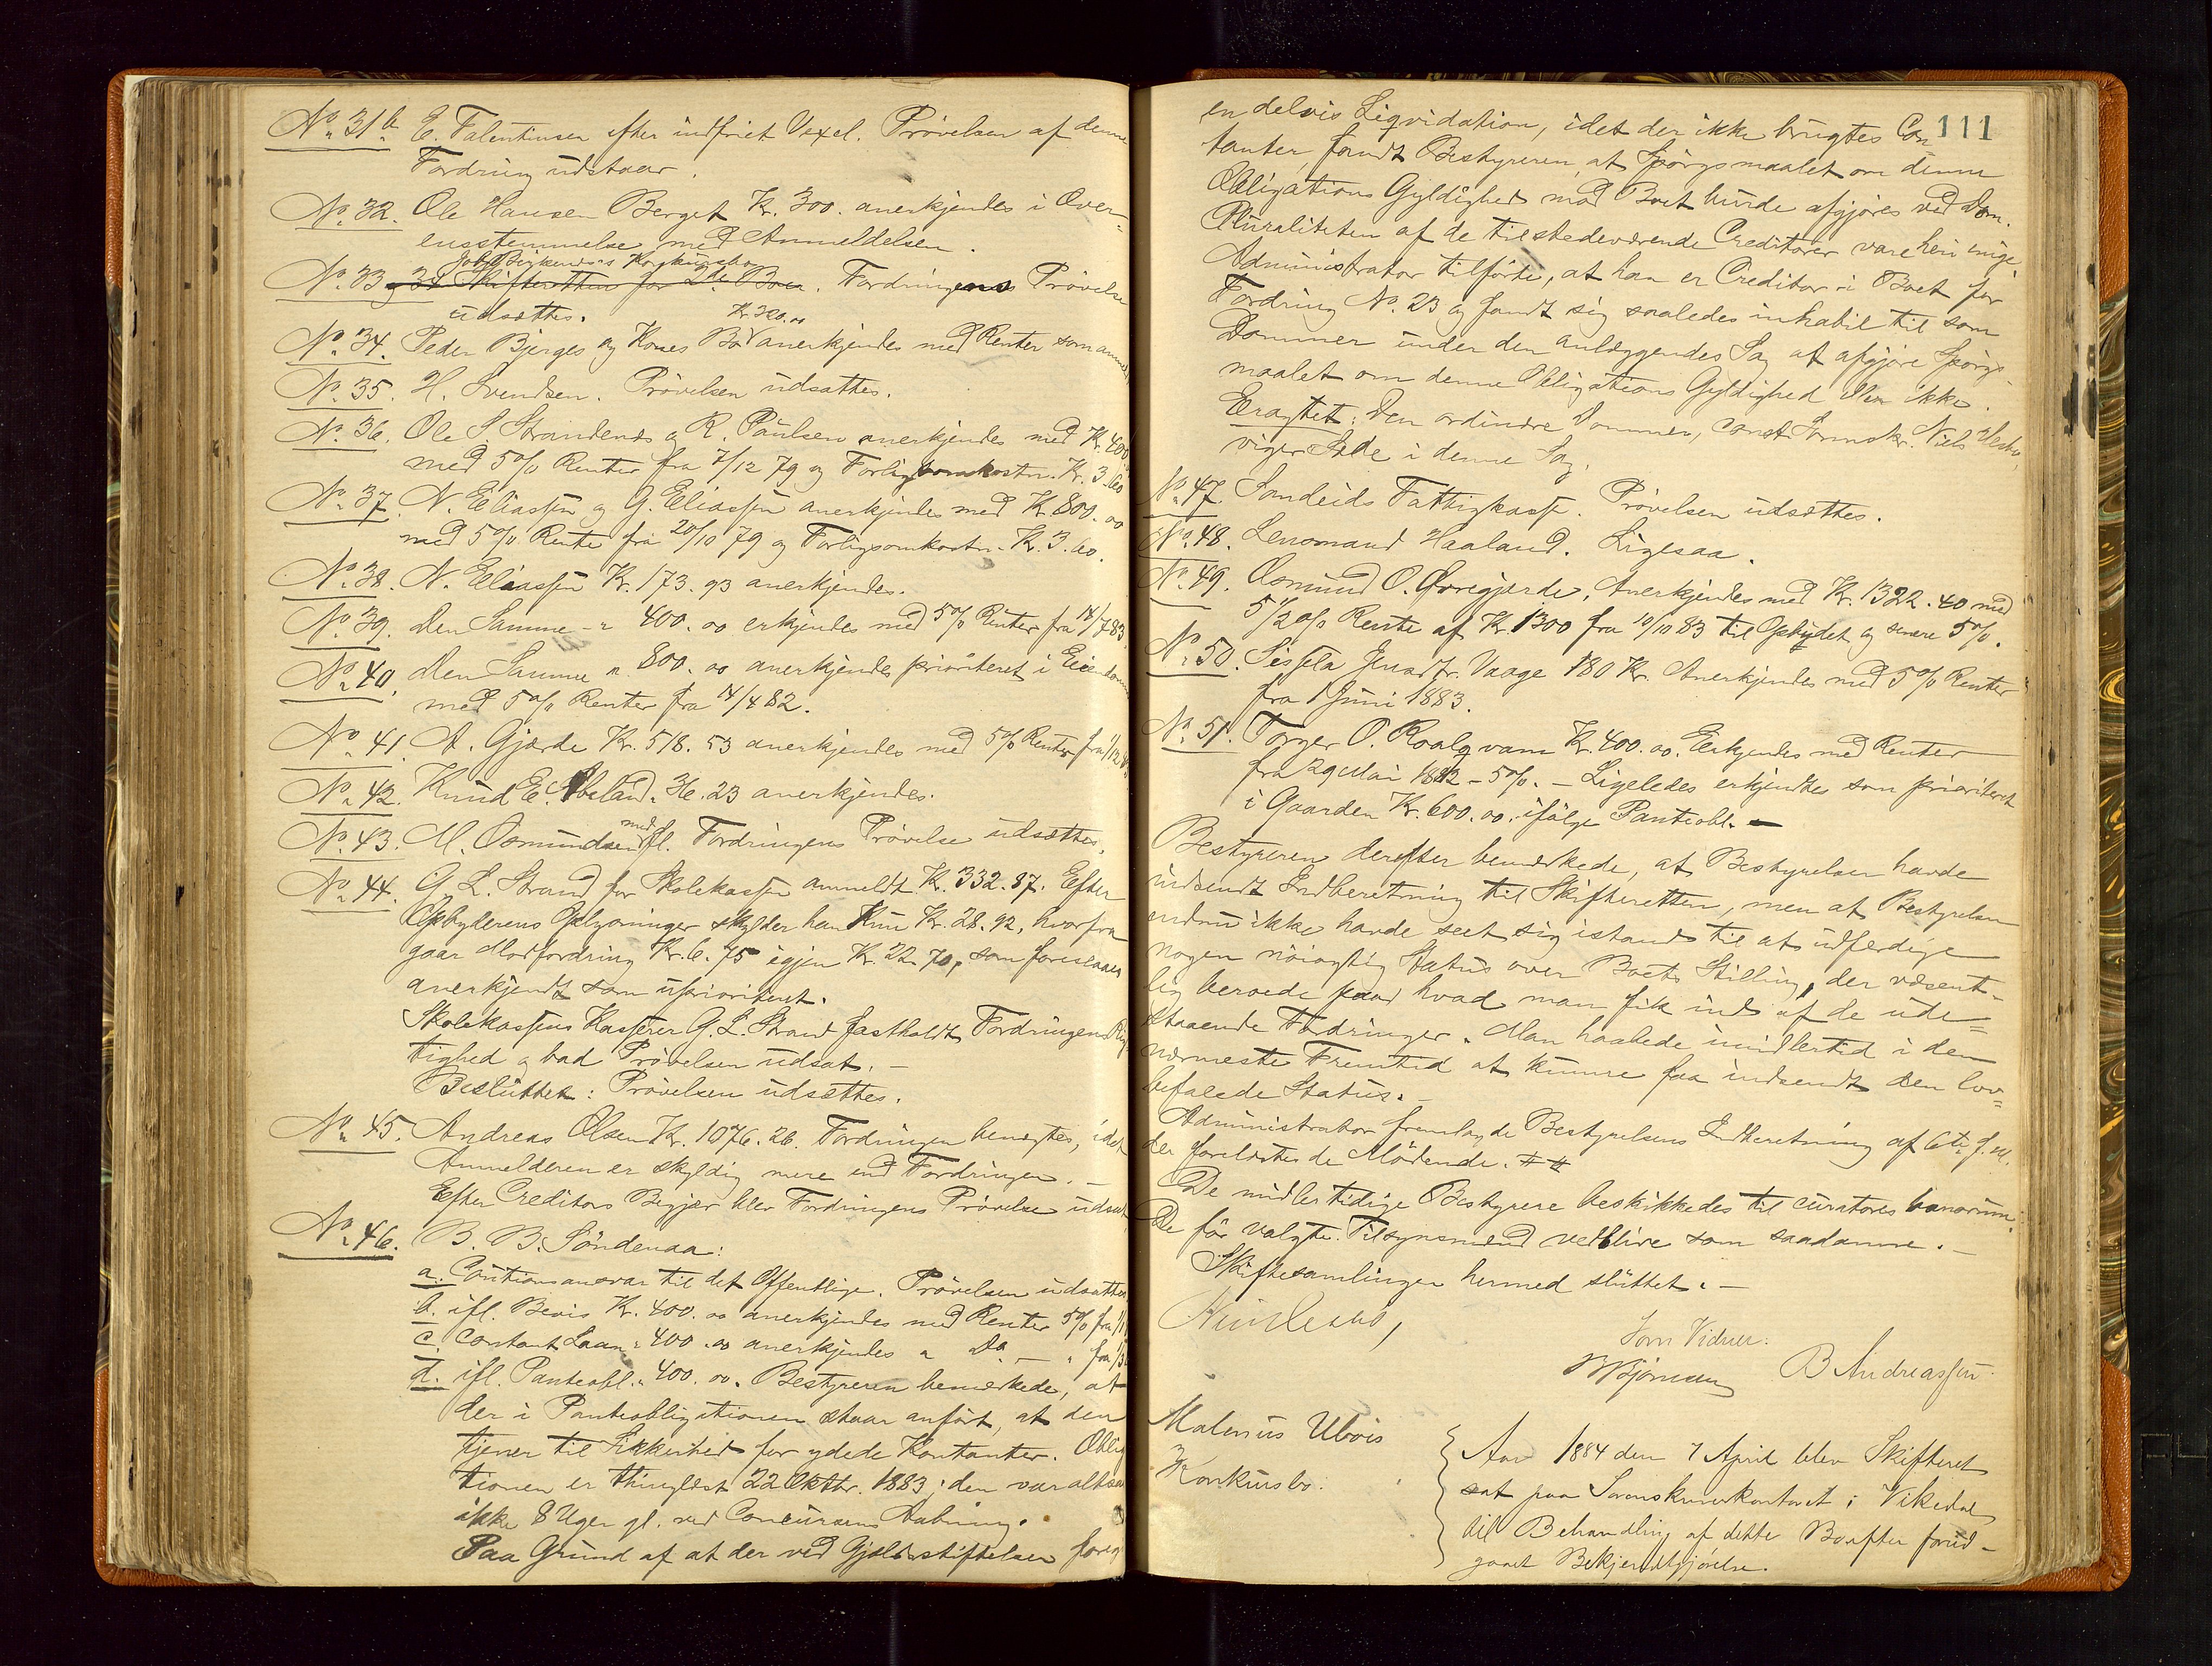 No. 31b. E. Falentinsen efter indfriet Vexel. Prøvelsen af denne
Fordring udstaar.
No. 32. Ole Hansen Berget Kr. 300. anerkjendes i Over-
ensstemmelse med Anmeldelsen.
Konkursbo
No. 33 og 34 Skifteretten for 2de Boer. Fordringens Prøvelse
udsættes. Kr. 320.00
No. 34. Peder Bjerges og Kones Bo anerkjendes med Renter som
No. 35. H. Svendsen. Prøvelsen udsættes.
No. 36. Ole S. Strandenes og R. Paulsen anerkjendes med Kr. 400
med 5% Renter fra 7/12 79 og Forligsomkostn. Kr. 3.60
No. 37. N. Eliassen og G. Eliassen anerkjendes med Kr. 800.00
med 5% Rente fra 20/10 79 og Forligsomkostn. Kr. 3.60.
No. 38. N. Eliassen Kr. 173.93 anerkjendes.
No. 39. den Samme - " 400.00 erkjendes med 5% Renter fra 14/7 83
No. 40. den Samme " 800.00 anerkjendes prioriteret i Eiendommen
med 5% Renter fra 14/4 82.
No. 41. A. Gjerde Kr. 518.53 anerkjendes med 5% Renter fra
No. 42. Knud E. 36.23 anerkjendes.
No. 43. M. Osmundsen med fl. Fordringens Prøvelse udsættes.
No. 44. G. L. Strand for Skolekassen anmeldt Kr. 332.87. Efter
Opbyderens Oplysninger skylder han kun Kr. 28.92, hvorfra
gaar Modfordring Kr. 6.75 igjen Kr. 22.70, som foreslaaes
anerkjendt som uprioriteret.
Skolekassens Kasserer G. L. Strand fastholdt Fordringens Rig-
tighed og bad Prøvelsen udsat. -
Besluttet: Prøvelsen udsættes.
No. 45. Andreas Olsen Kr. 1076.26. Fordringen benegtes, idet
Anmelderen er skyldig mere end Fordringen. -
Efter Creditors Begjær blev Fordringens Prøvelse udsat
No. 46. B. B. Söndenaa:
a. Cautionsansvar til det Offentlige. Prøvelsen udsættes
b. ifl. Bevis Kr. 400.00 anerkjendes med Renter 5% fra
c. Contant Laan " 400.00 anerkjendes " Do - " fra
d. ifl. Panteobl. " 400.00. Bestyreren bemærkede, at
der i Panteobligationen staar anført, at den
tjener til Sikkerhed for ydede Kontanter. Obliga
tionen er thinglæst 22 Oktbr. 1883; den var altsaa
ikke 8 Uger gl. ved Concursens Aabning.
Paa Grund af at der ved Gjældsstiftelsen foreg
111
en delvis Liqvidation, idet der ikke brugtes Con-
tanter, fandt Bestyreren, at Spørgsmaalet om denne
Obligations Gyldighed mod Boet burde afgjøres ved Dom.
Pluraliteten af de tilstedeværende Creditorer vare heri enige.
Administrator tilførte, at han er Creditor i Boet for
Fordring No. 23 og fandt sig saaledes inhabil til som
Dommer under den anlæggendes Sag at afgjøre Spørgs-
maalet om denne Obligations Gyldighed eller ikke.
Eragtet: Den ordinære Dommer, const. Sorenskr. Niels
viger Sæde i denne Sag.
No. 47 Sandeids Fattigkasse. Prøvelsen udsættes.
No. 48. Lensmand Haaland. Ligesaa.
No. 49. Osmund O. Øvregjerde, Anerkjendes med Kr. 1322.40 med
5 1/2 % Rente af Kr. 1300 fra 10/10 83 til Opbudet og senere 5%.
No. 50. Sissela Jensdtr. Vaage 180 Kr. Anerkjendes med 5% Renter
fra 1 Juni 1883.
No. 51. Torger O. Roalqvam Kr. 400.00. Erkjendes med Renter
fra 29 Mai 1882 - 5%. - Ligeledes erkjendtes som prioriteret
i Gaarden Kr. 600.00. ifølge Panteobl. -
Bestyreren derefter bemærkede, at Bestyrelsen havde
indsendt Indberetning til Skifteretten, men at Bestyrelsen
endnu ikke havde seet sig istand til at udfærdige
nogen nöiagtig Status over Boets Stilling, der væsent-
lig beroede paa hvad man fik ind af de ude-
staaende Fordringer. Man haabede imidlertid i den
nærmeste Fremtid at kunne faa indsendt den lov-
befalede Status. -
Administrator fremlagde Bestyrelsens Indberetning af 6te f.M.
der forelæstes de Mødende. # #
De midlertidige Bestyrere beskikkedes til curatores bonorum.
De før valgte Tilsynsmænd vedblive som saadanne. -
Skiftesamlingen hermed sluttet. -
Som Vidner:
B Andreassen
Malenus Ulvøis
Konkursbo.
Aar 1884 den 7 April blev Skifteret
sat paa Sorenskriverkontoret i Vikedal
til Behandling af dette Bo efter forud-
gaaet Bekjendtgjørelse.